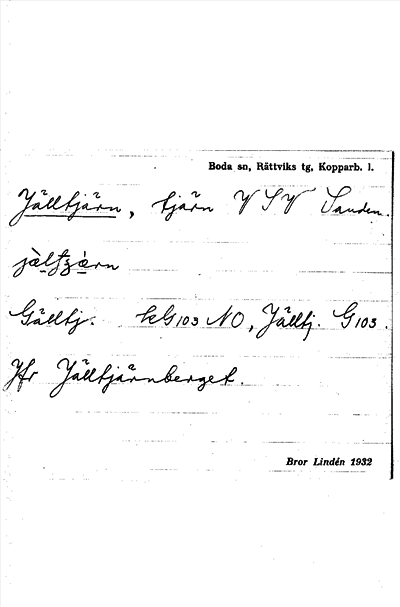 Boda sn, Rättviks tg, Kopparb. l.
Jälltjärn, tjärn V SV Sanden.
Gälltj. kG103 NO, Jälltj. G103.
Jfr Jälltjärnberget.
Bror Lindén 1932